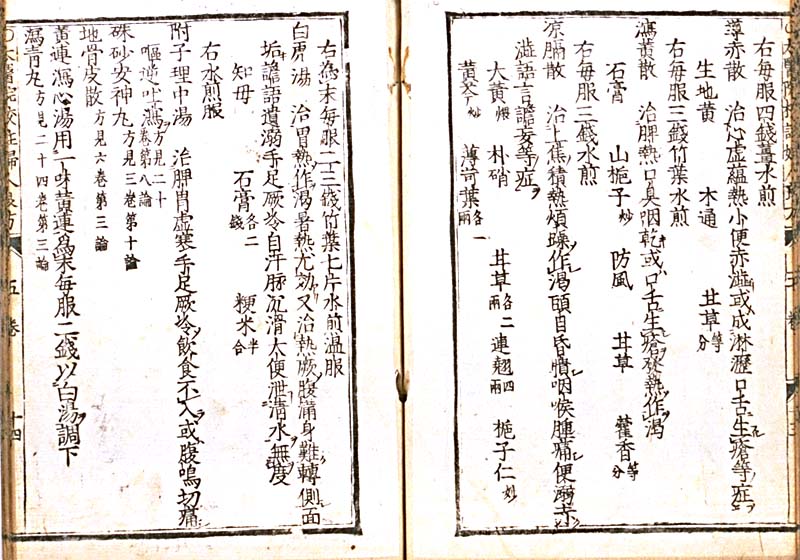 右每服四錢薑水煎
導赤散　治心虛蘊熱小便赤澁或成淋瀝口舌生瘡等症
生地黄　木通　甘草等分
右每服三錢竹葉水煎
瀉黄散　治脾熱口臭咽乾或口舌生瘡發熱作渴
石膏　山梔子炒　防風　甘草　藿香等分
右每服三錢水煎
凉膈散　治上焦積熱煩躁作渴頭目昏憒咽喉腫痛便溺赤
澁語言譫妄等症
大黄煨　朴硝　甘草各二兩　連翹四兩　梔子仁炒
黄芩炒　薄荷葉各一兩
右為末每服二三錢竹葉七片水煎温服
白虎湯　治胃熱作渴暑熱尤効又治熱厥腹滿身難轉側面
垢譫語遺溺手足厥冷自汗脉沉滑大便泄清水無度
知母　石膏各二錢　粳米半合
右水煎服
附子理中湯　治脾胃虛寒手足厥冷飲食不入或腹鳴切痛
嘔逆吐瀉方見二十卷第八論
硃砂安神丸方見三卷第十論
地骨皮散方見六卷第三論
黄連瀉心湯用一味黄連為末每服二錢以白湯調下
瀉青丸方見二十四卷第三論
五卷
十四